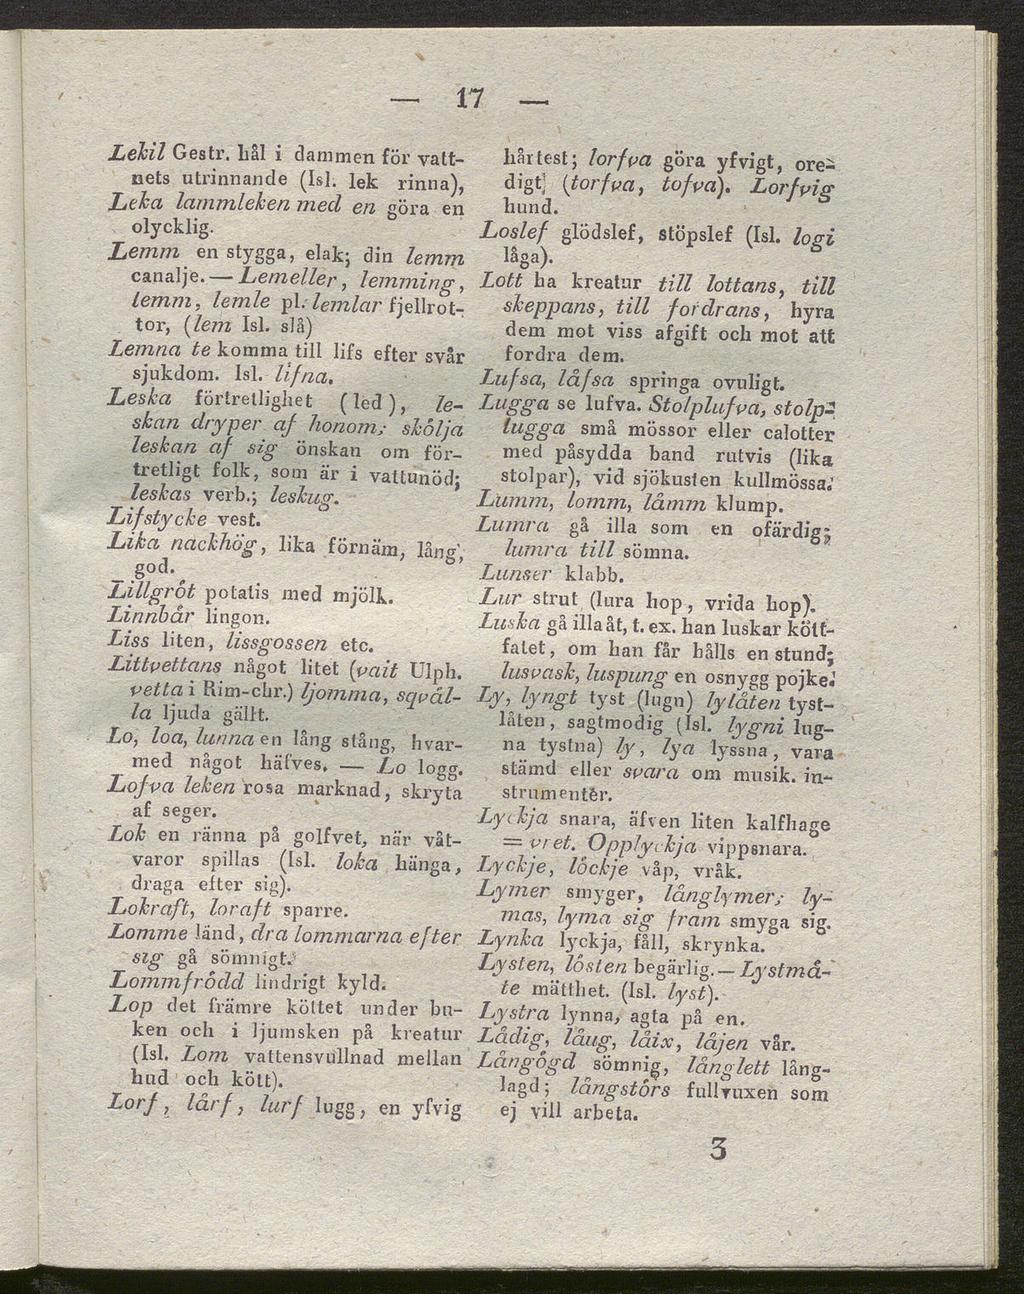 — 17 —
Lekil Gestr. hål i dammen för vatt-
nets utrinnande (Isl. lek rinna),
Leka lammleken med en göra en
olycklig.
Lemm en stygga, elak; din lemm
canalje. — Lemeller, lemming,
lemm, lemle pl. lemlar fjellrot-
tor, (lem Isl. slå)
Lemna te komma till lifs efter svår
sjukdom. Isl. lifna.
Leska förtretlighet (led), le-
skan dryper af honom; skölja
leskan af sig önskan om för-
tretligt folk, som är i vattunöd;
leskas verb.; leskug.
Lifstycke vest.
Lika nackhög, lika förnäm, lång,
god.
Lillgröt potatis med mjölk.
Linnbär lingon.
Liss liten, lissgossen etc.
Littvettans något litet (vait Ulph.
vetta i Rim-chr.) ljomma, sqväl-
la ljuda gällt.
Lo, loa, lunna en lång stång, hvar-
med något häfves. — Lo logg.
Lofva leken rosa marknad, skryta
af seger.
Lok en ränna på golfvet, när våt-
varor spillas (Isl. loka hänga,
draga efter sig).
Lokraft, loraft sparre.
Lomme länd, dra lommarna efter
sig gå sömnigt.
Lommfrödd lindrigt kyld.
Lop det främre köttet under bu-
ken och i ljumsken på kreatur
(Isl. Lom vattensvullnad mellan
hud och kött).
Lorf, lårf, lurf lugg, en yfvig
hårtest; lorfva göra yfvigt, ore-
digt; (torfva, tofva). Lorfvig
hund.
Loslef glödslef, stöpslef (Isl. logi
låga).
Lott ha kreatur till lottans, till
skeppans, till fordrans, hyra
dem mot viss afgift och mot att
fordra dem.
Lufsa, låfsa springa ovuligt.
Lugga se lufva. Stolplufva, stolp-
lugga små mössor eller calotter
med påsydda band rutvis (lika
stolpar), vid sjökusten kullmössa.
Lumm, lomm, låmm klump.
Lumra gå illa som en ofärdig;
lumra till sömna.
Lunser klabb.
Lur strut (lura hop, vrida hop).
Luska gå illa åt, t. ex. han luskar kött-
fatet, om han får hålls en stund;
lusvask, luspung en osnygg pojke.
Ly, lyngt tyst (lugn) lylåten tyst-
låten, sagtmodig (Isl. lygni lug-
na tystna) ly, lya lyssna, vara
stämd eller svara om musik. in-
strumenter.
Lyckja snara, äfven liten kalfhage
= vret. Opplyckja vippsnara.
Lyckje, löckje våp, vråk.
Lymer smyger, långlymer; ly-
mas, lyma sig fram smyga sig.
Lynka lyckja, fåll, skrynka.
Lysten, lösten begärlig. — Lystmå-
te mätthet. (Isl. lyst).
Lystra lynna, agta på en.
Lådig, låug, låix, låjen vår.
Långögd sömnig, långlett lång-
lagd; långstörs fullvuxen som
ej vill arbeta.
3